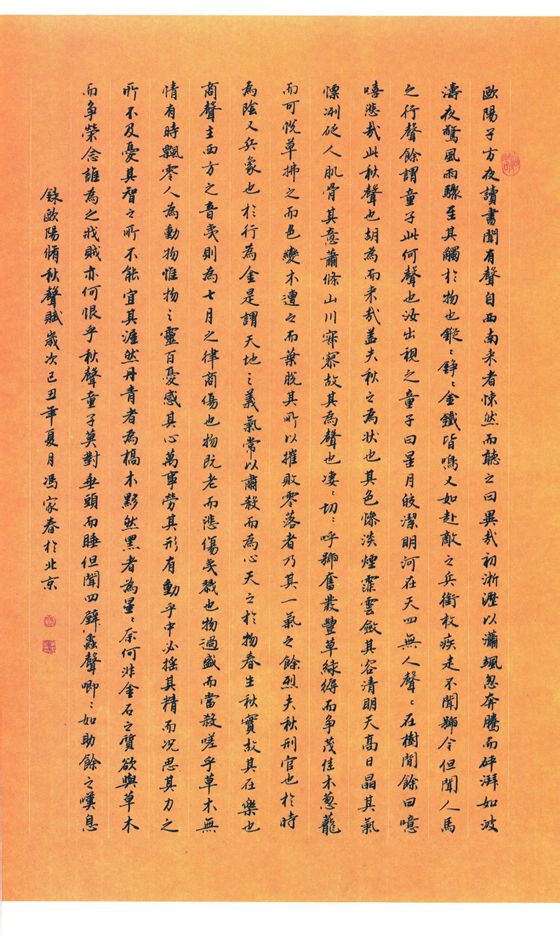 歐陽子方夜讀書聞有聲自西南来者悚然而聽之曰異哉初淅瀝以瀟颯忽奔騰而砰湃如波
濤夜驚風雨驟至其觸於物也鏦〻錚〻金鐵皆鳴又如赴敵之兵銜枚疾走不聞號令但聞人馬
之行聲餘謂童子此何聲也汝出視之童子曰星月皎潔明河在天四無人聲〻在樹間餘曰噫
嘻悲哉此秋聲也胡為而来哉蓋夫秋之為状也其色慘淡煙霏雲斂其容清明天高日晶其氣
慄冽砭人肌骨其意蕭條山川寂寥故其為聲也凄〻切〻呼號奮發豐草綠縟而争茂佳木蔥蘢
而可悅草拂之而色變木遭之而葉脫其所以摧敗零落者乃其一氣之餘烈夫秋刑官也於時
為陰又兵象也於行為金是謂天地之義氣常以肅殺而為心天之於物春生秋實故其在樂也
商聲主西方之音夷則為七月之律商傷也物既老而悲傷夷戮也物過盛而當殺嗟乎草木無
情有時飄零人為動物惟物之靈百憂感其心萬事勞其形有動乎中必搖其精而况思其力之
所不及憂其智之所不能宜其渥然丹青者為槁木黟然黑者為星〻奈何非金石之質欲與草木
而争榮念誰為之戕賊亦何恨乎秋聲童子莫對垂頭而睡但聞四壁蟲聲唧〻如助餘之嘆息
錄歐陽脩秋聲賦歲次己丑年夏月馮家春於北京